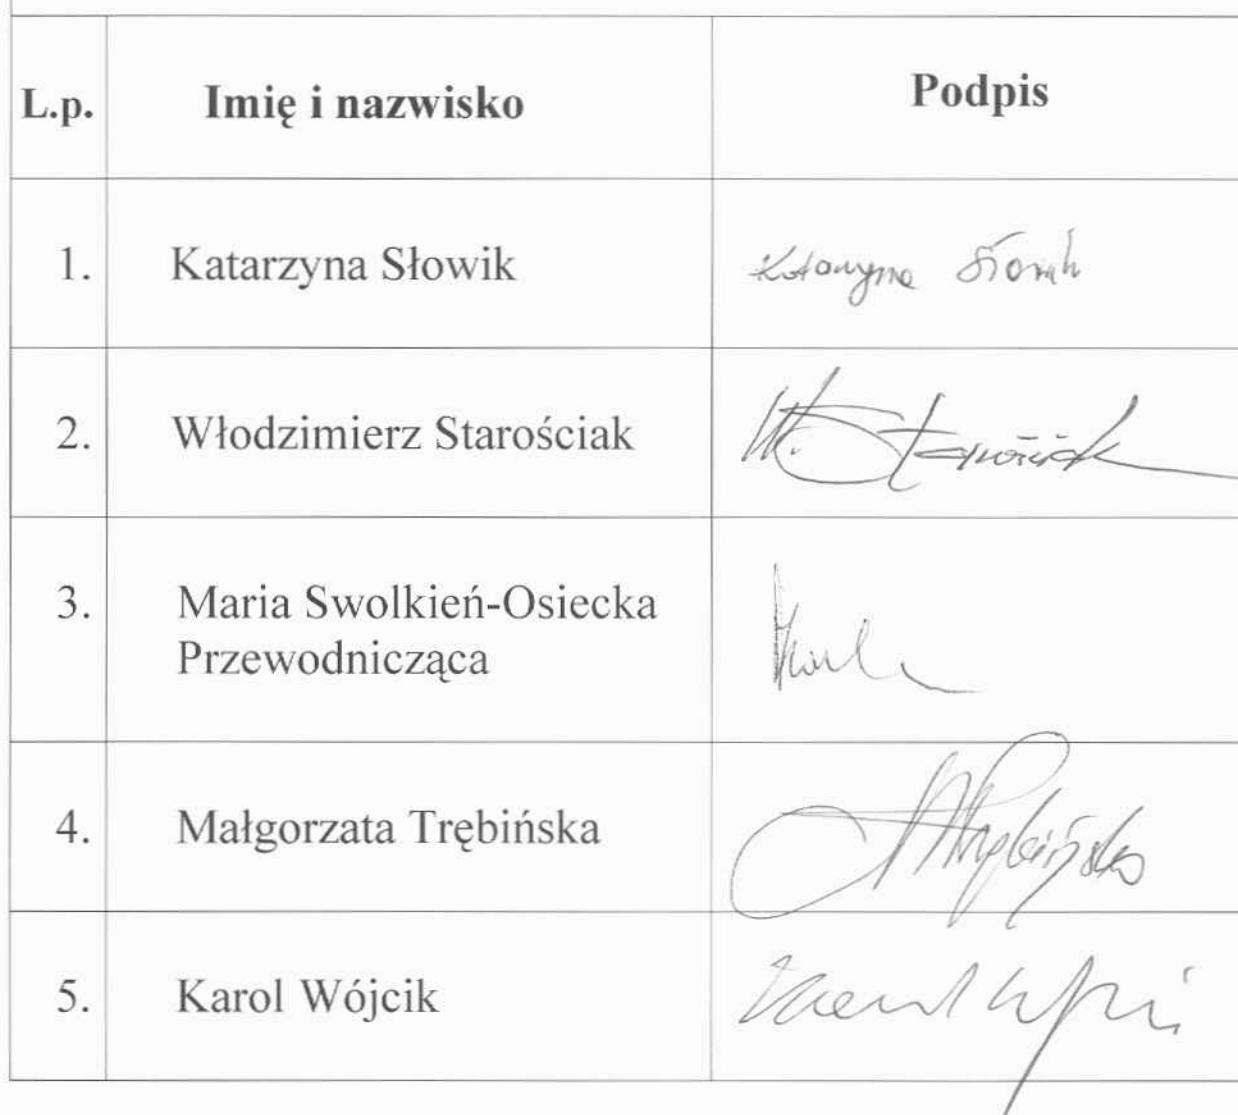 L.p. Imię i nazwisko Podpis
1. Katarzyna Słowik Katarzyna Słowik
2. Włodzimierz Starościak W. Starościak
3. Maria Swolkień-Osiecka
Przewodnicząca
4. Małgorzata Trębińska
5. Karol Wójcik